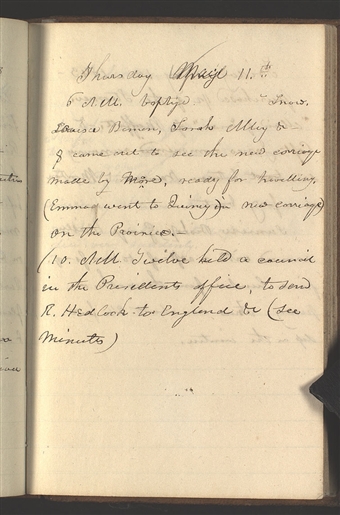 Thursday April 11.th
6 A.M. baptized Snow,
Louisa Beman, Sarah Alley &c
& came out to see the new carriage
made by More, ready for travelling.
(Emma went to Quincy in new carriage)
on the Prairie.-
(10. A.M. Twelve held a council
in the Presidents office, to send
R. Hedlock to England &c (see
Minutes)